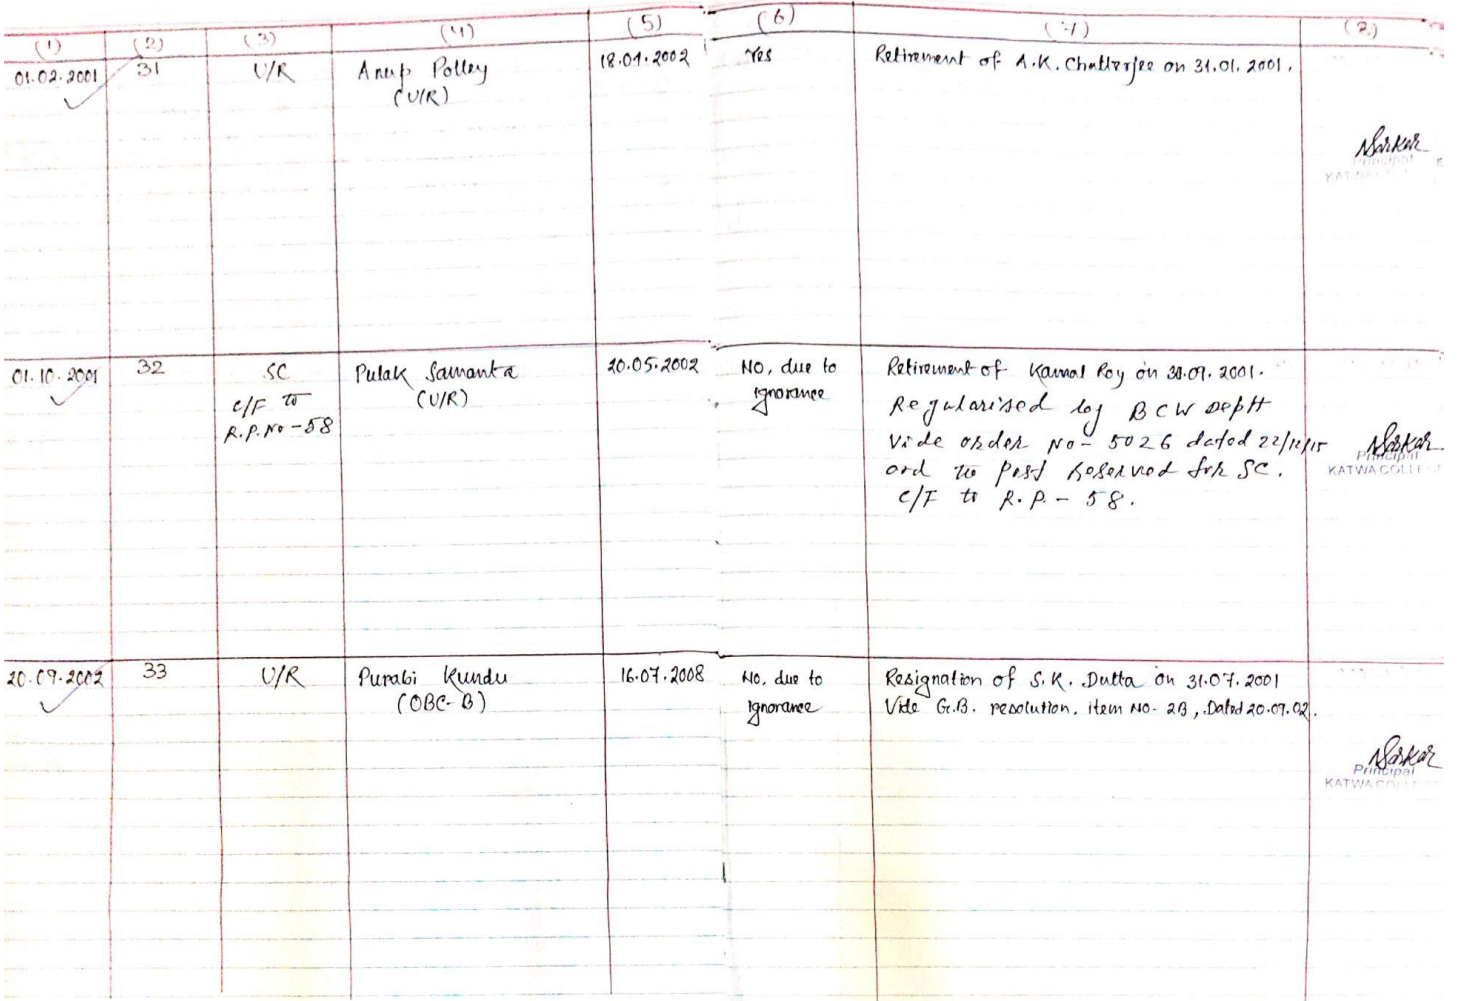 (1) (2) (3) (4) (5) (6) (7)
01.02.2001 31 U/R Anup Polley 18.01.2002 Yes Retirement of A.K. Chatterjee on 31.01.2001.
(U/R)
NSarkar
Principal
01.10.2001 32 SC Pulak Samanta 20.05.2002 NO, due to Retirement of Kamal Roy on 30.09.2001.
C/F to (U/R) ignorance Regularised by BCW Deptt
R.P. No-58 Vide order No- 5026 dated 22/12/15
and the post reserved for SC.
C/F to R.P. - 58.
NSarkar
Principal
KATWA COLLEGE
20.09.2002 33 U/R Purabi Kundu 16.07.2008 No, due to Resignation of S.K. Dutta on 31.07.2001
(OBC-B) ignorance Vide G.B. resolution, item NO- 2B, Dated 20.09.02.
NSarkar
Principal
KATWA COLLEGE